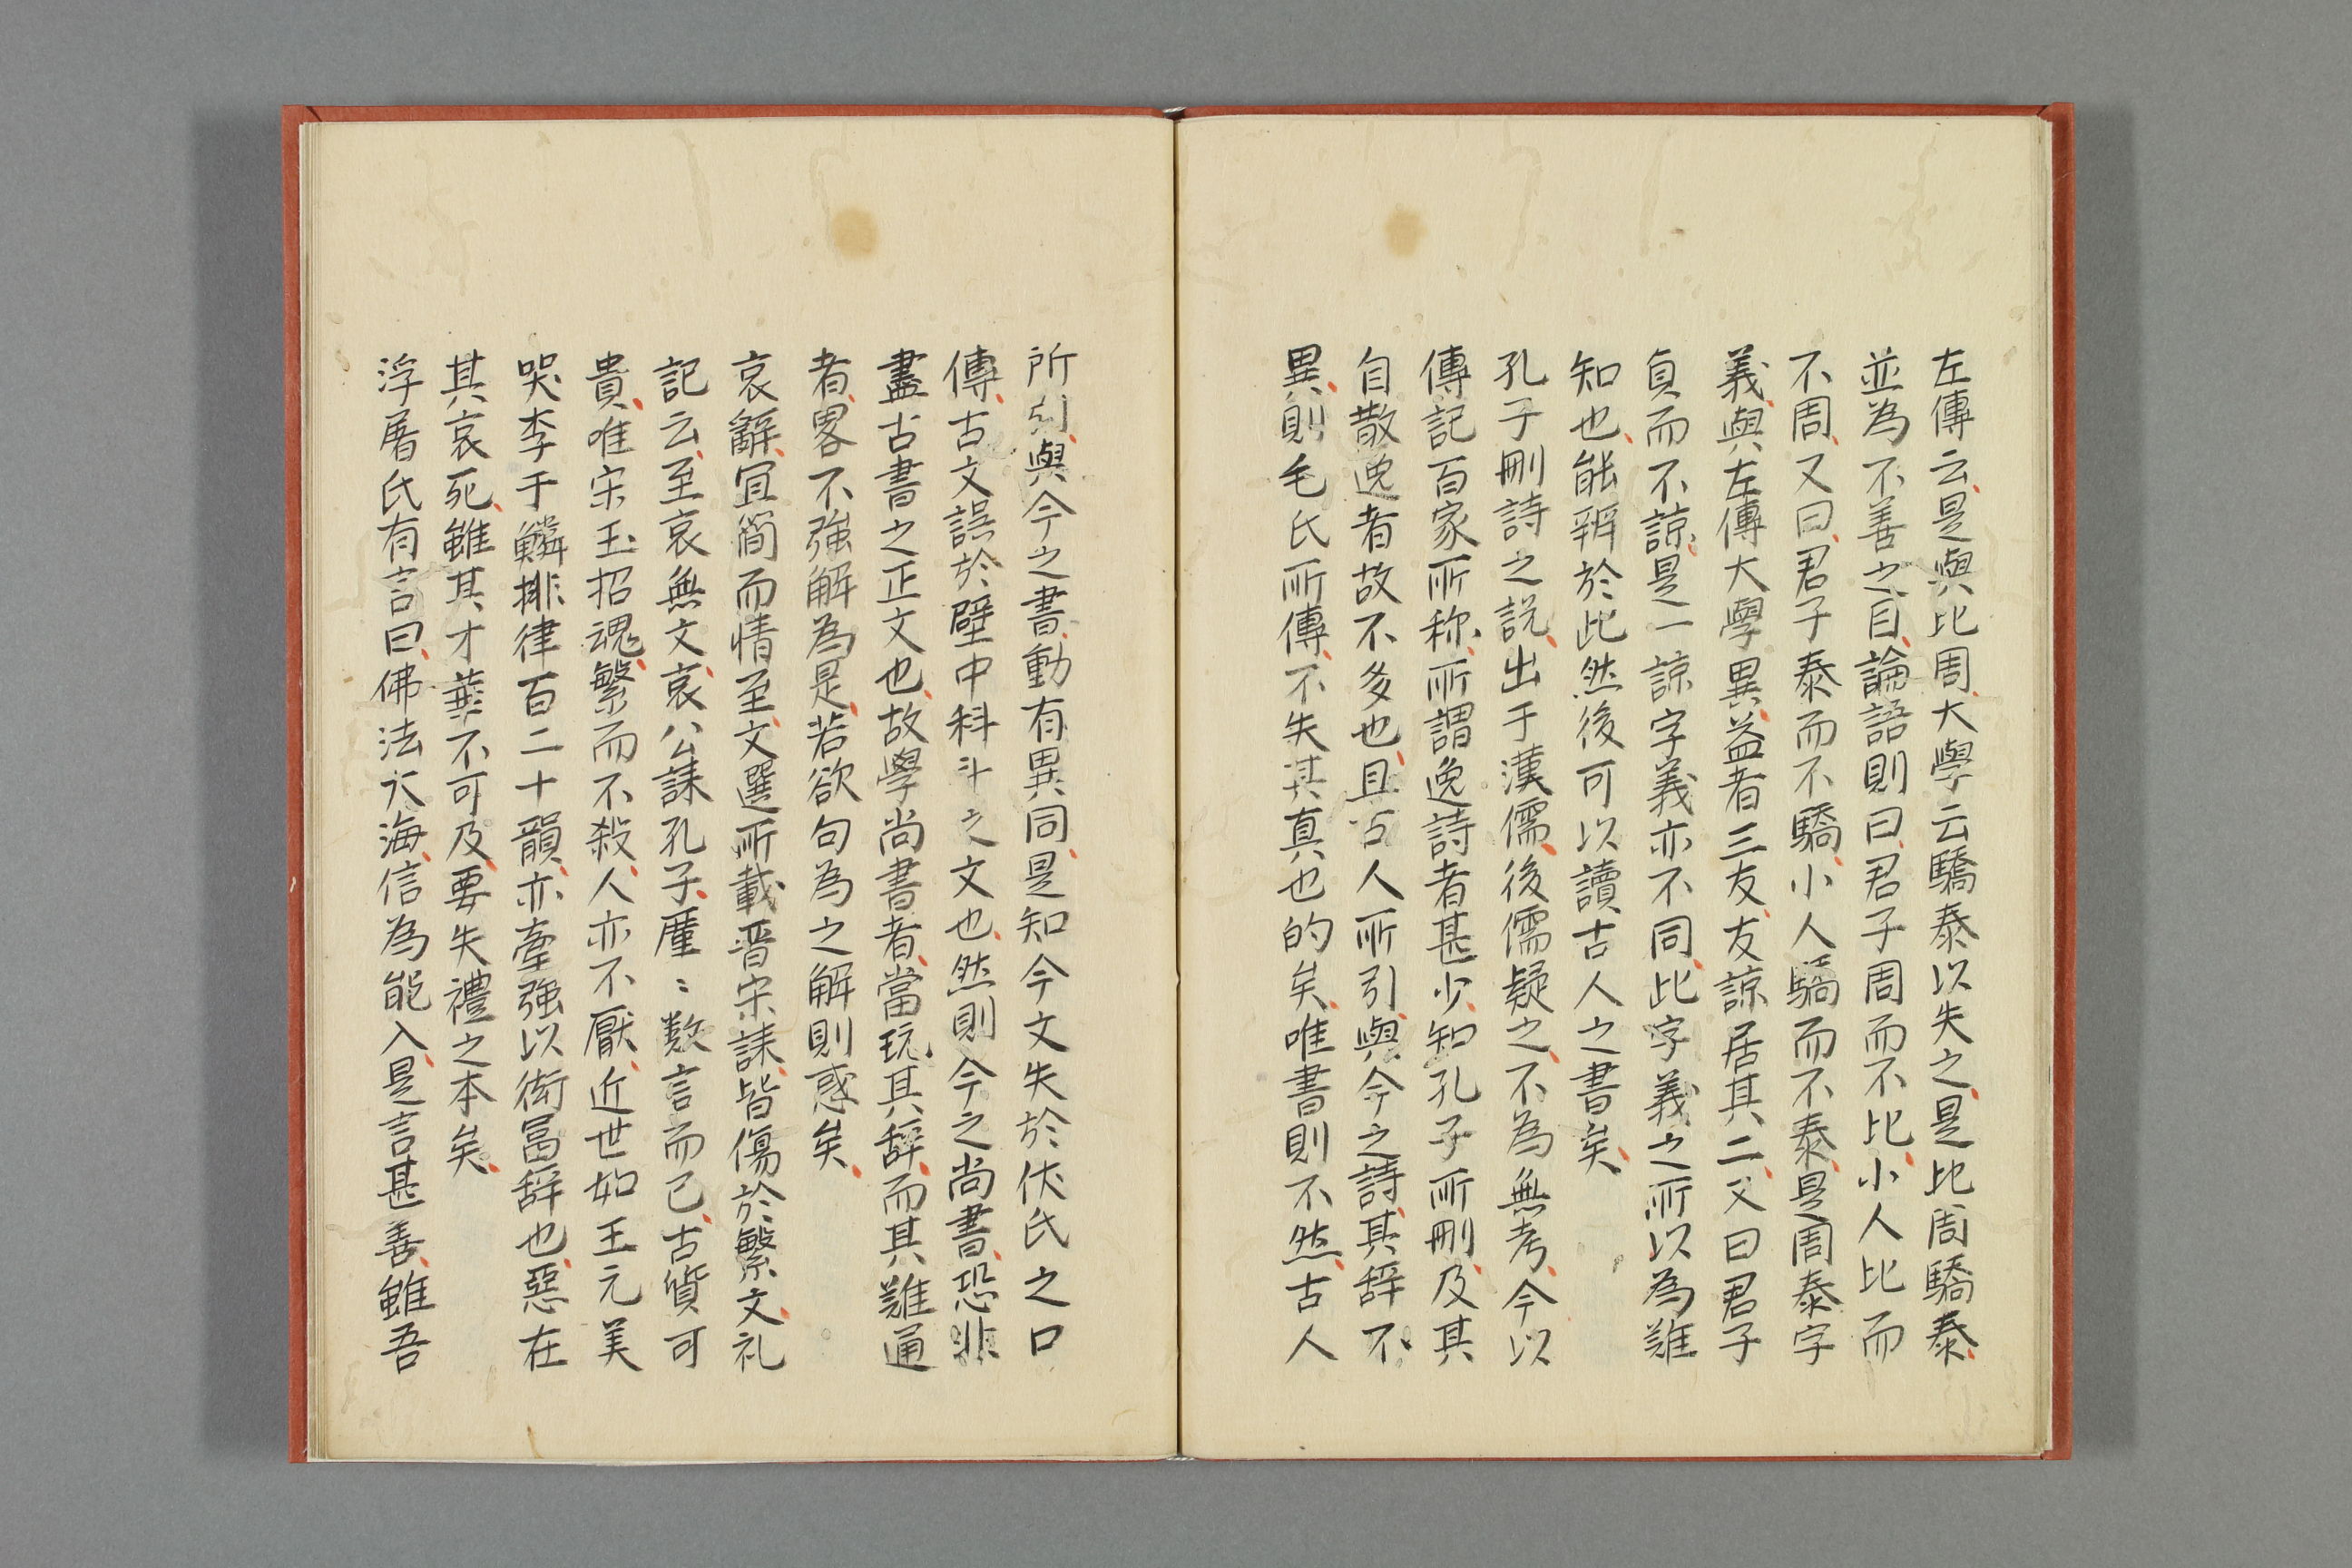 左傳云是與比周大學云驕泰以失之是比周驕泰
並為不善之目論語則曰君子周而不比小人比而
不周又曰君子泰而不驕小人驕而不泰是周泰字
義與左傳大學異益者三友友諒居其二又曰君子
貞而不諒是一諒字義亦不同此字義之所以為難
知也能辨於此然後可以讀古人之書矣
孔子刪詩之説出于漢儒後儒疑之不為無考今以
傳記百家所称所謂逸詩者甚少知孔子所刪及其
自散逸者故不多也且古人所引與今之詩其辞不
異則毛氏所傳不失其真也的矣唯書則不然古人
所引與今之書動有異同是知今文失於伏氏之口
傳古文誤於壁中科斗之文也然則今之尚書恐非
盡古書之正文也故學尚書者當玩其辞而其難通
者畧不強解為是若欲句為之解則惑矣
哀辭宜簡而情至文選所載晋宋誄皆傷於繁文礼
記云至哀無文哀公誄孔子廑〻数言而已古質可
貴唯宋玉招魂繁而不殺人亦不厭近世如王元美
哭李于鱗排律百二十韻亦牽強以衒冨辞也惡在
其哀死雖其才華不可及要失禮之本矣
浮屠氏有言曰佛法大海信為能入是言甚善雖吾